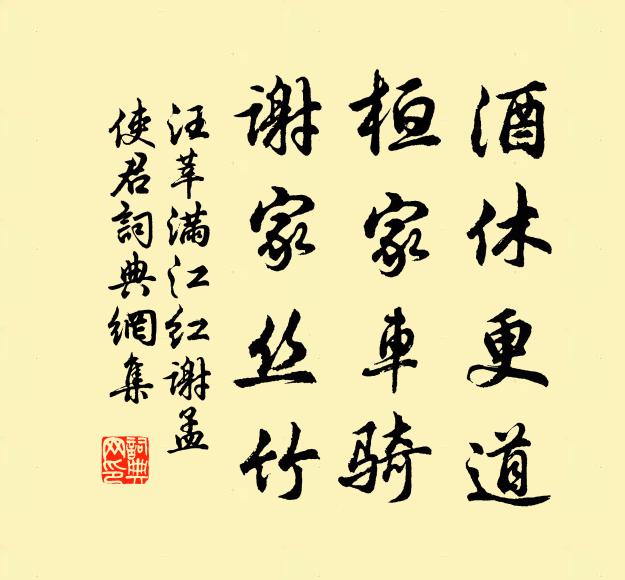 酒休更道
桓家車騎
謝家丝竹
汪莘滿江紅謝孟
使君詞典網集
詞典網印